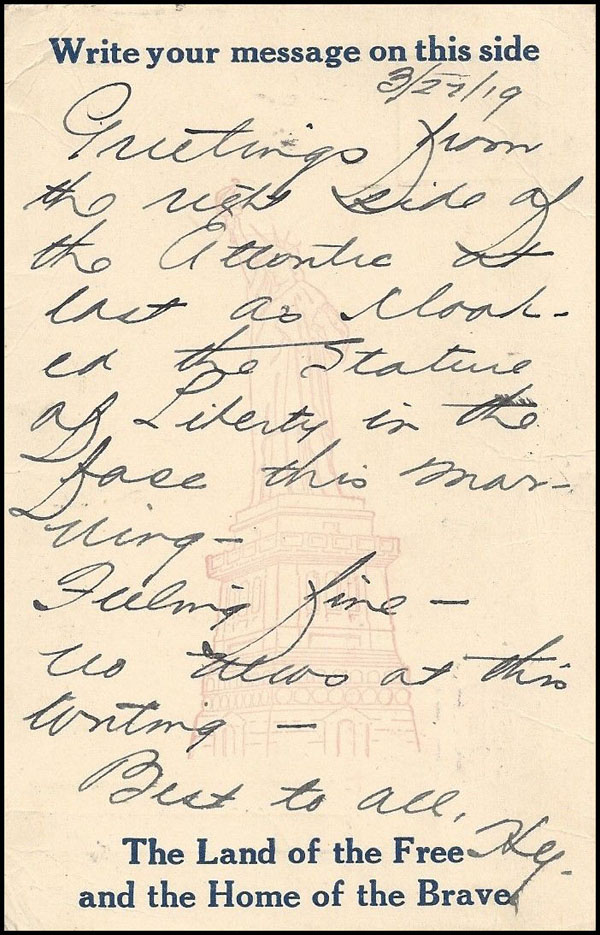 Write your message on this side
3/27/19
Greetings from
the right side of
the Atlantic at
last as I look-
ed the Stature
of Liberty in the
face this mor-
ning-
Feeling fine -
no news at this
writing -
Best to all,
Hy.
The Land of the Free
and the Home of the Brave